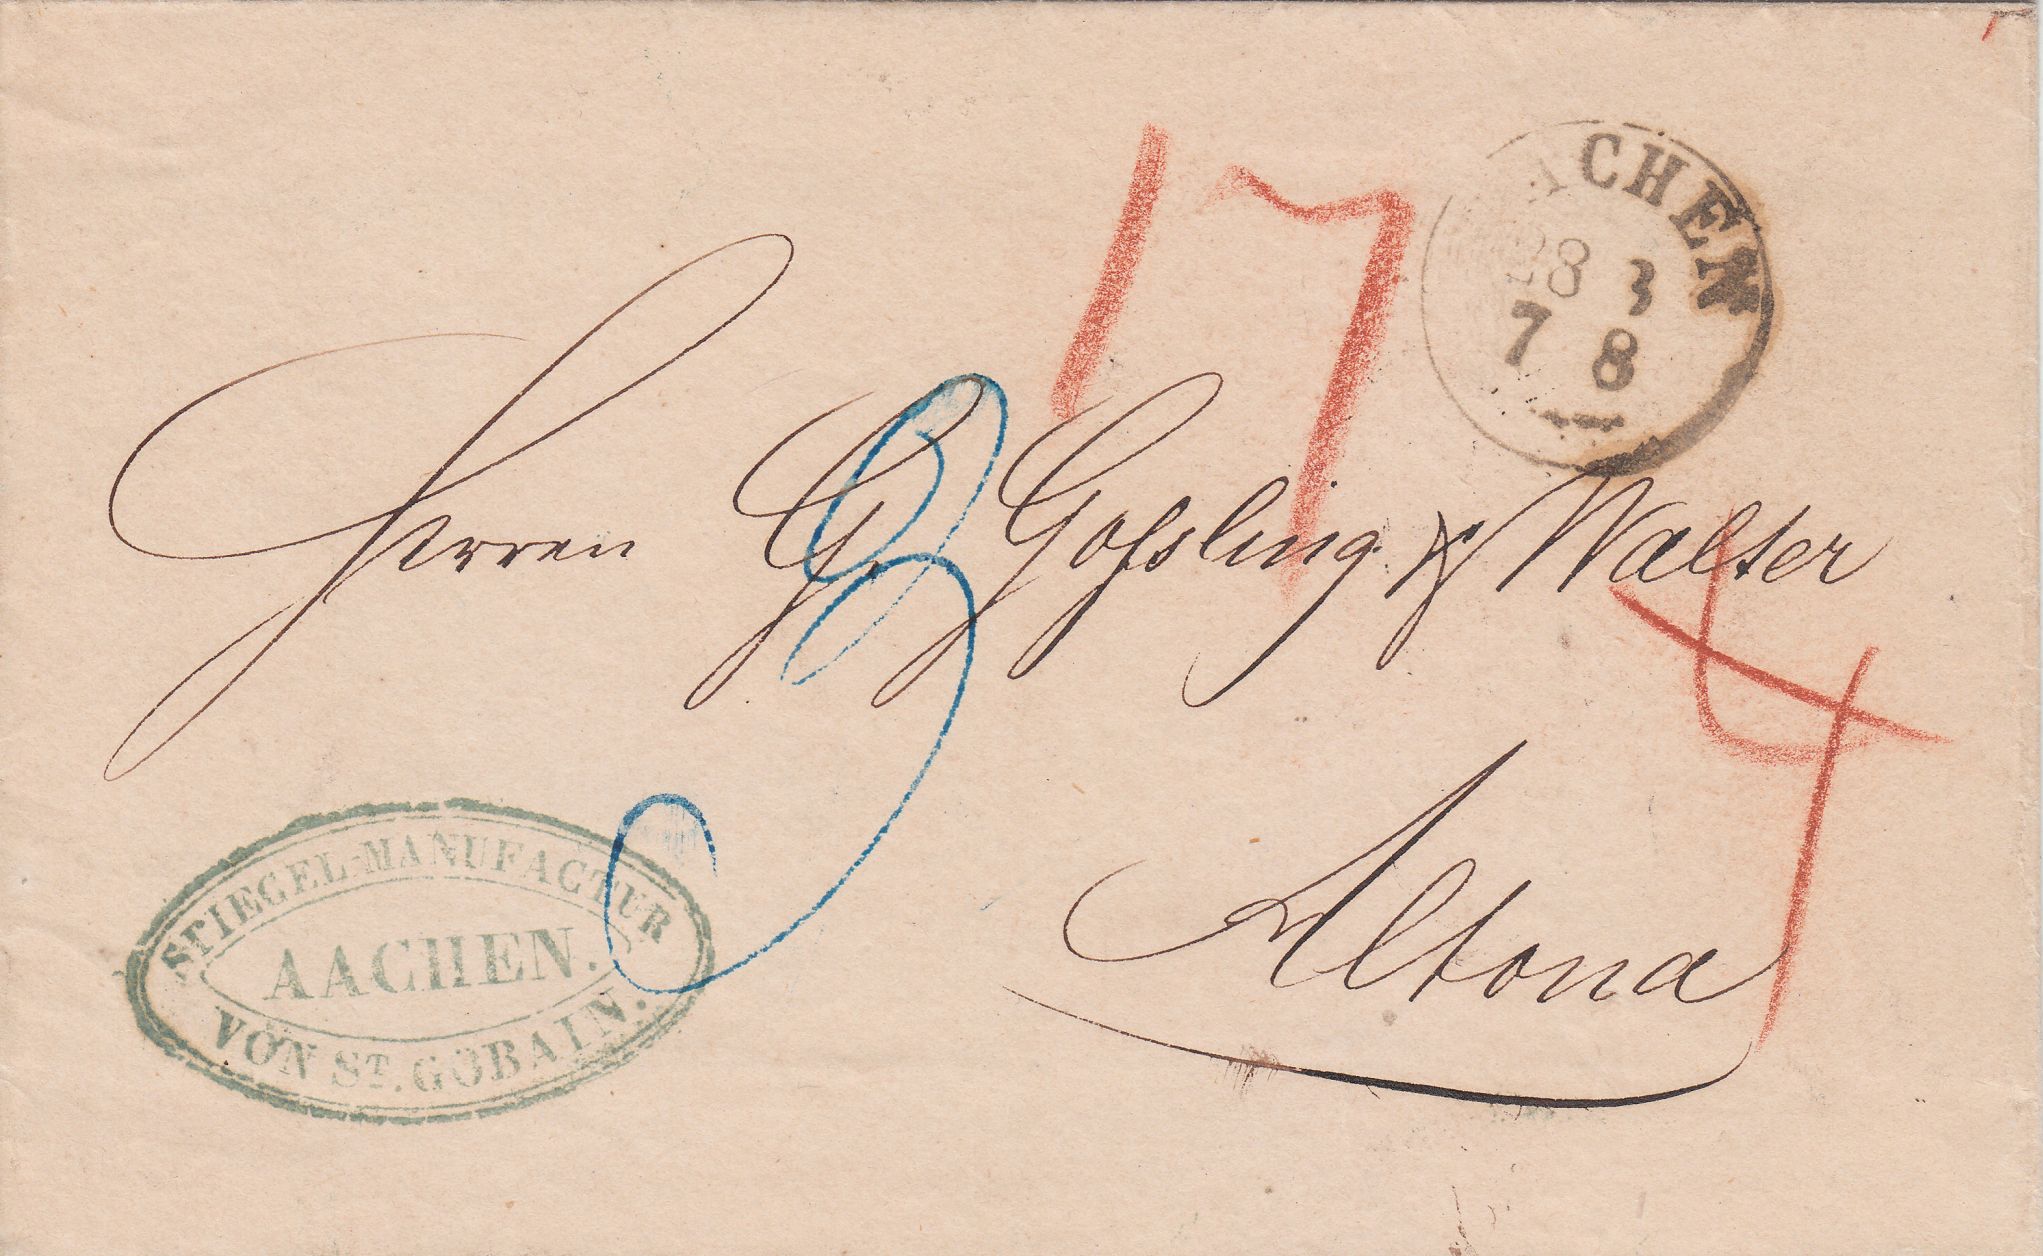 AACHEN
28 3
7 8
17
3
Herren G. Gossling & Walter
4
Altona
SPIEGEL-MANUFACTUR
AACHEN.
VON ST. GOBAIN.